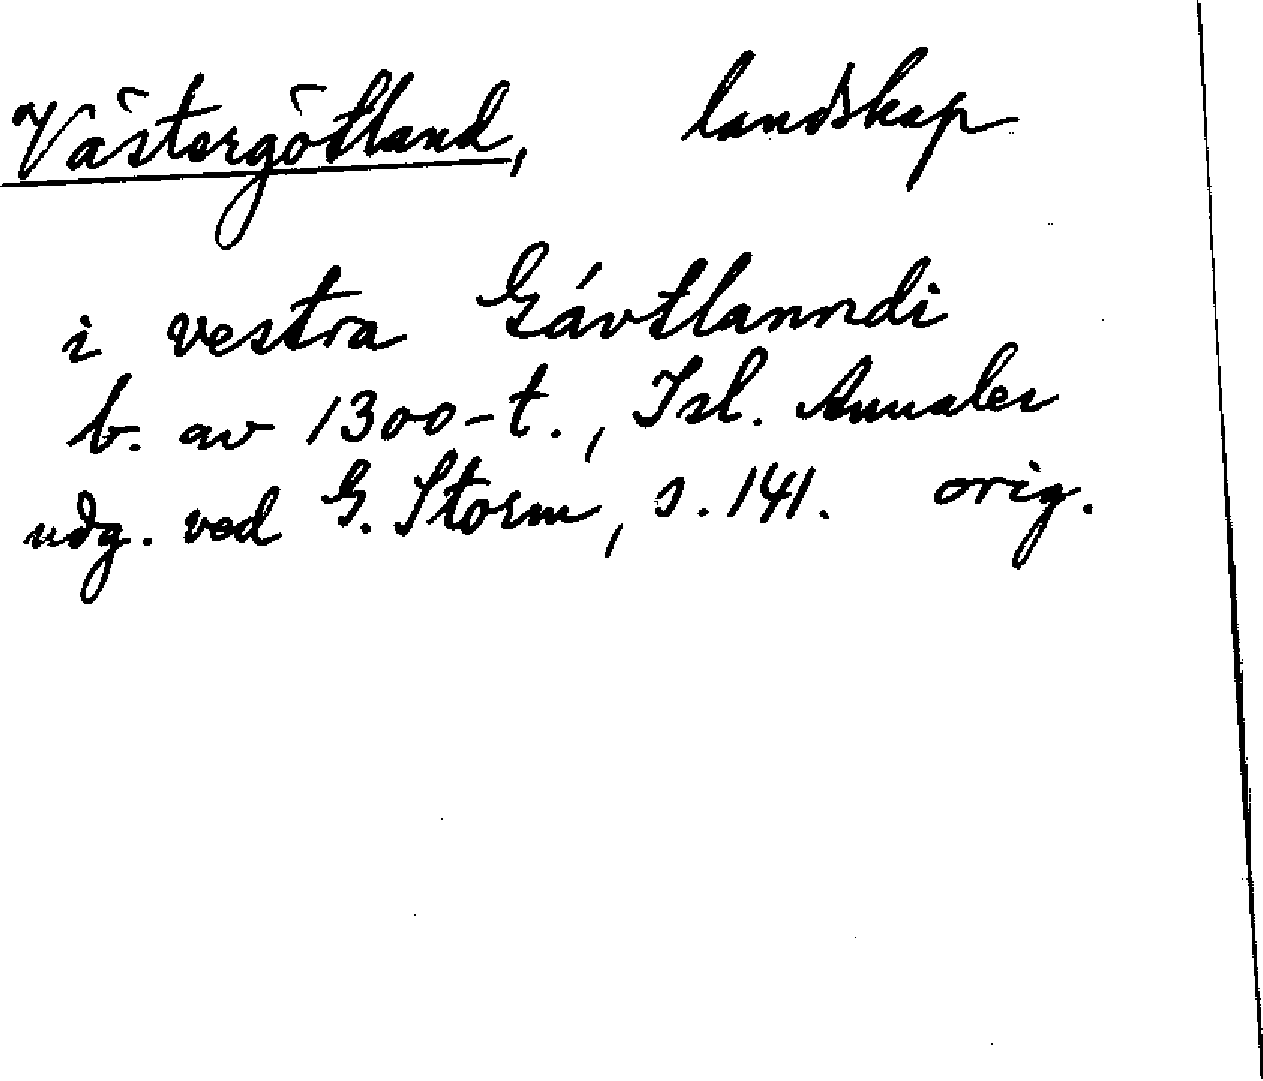 Västergötland, landskap
i vestra Gávtlanndi
b. av 1300-t., Isl. Annaler
udg. ved G. Storm, s. 141. orig.